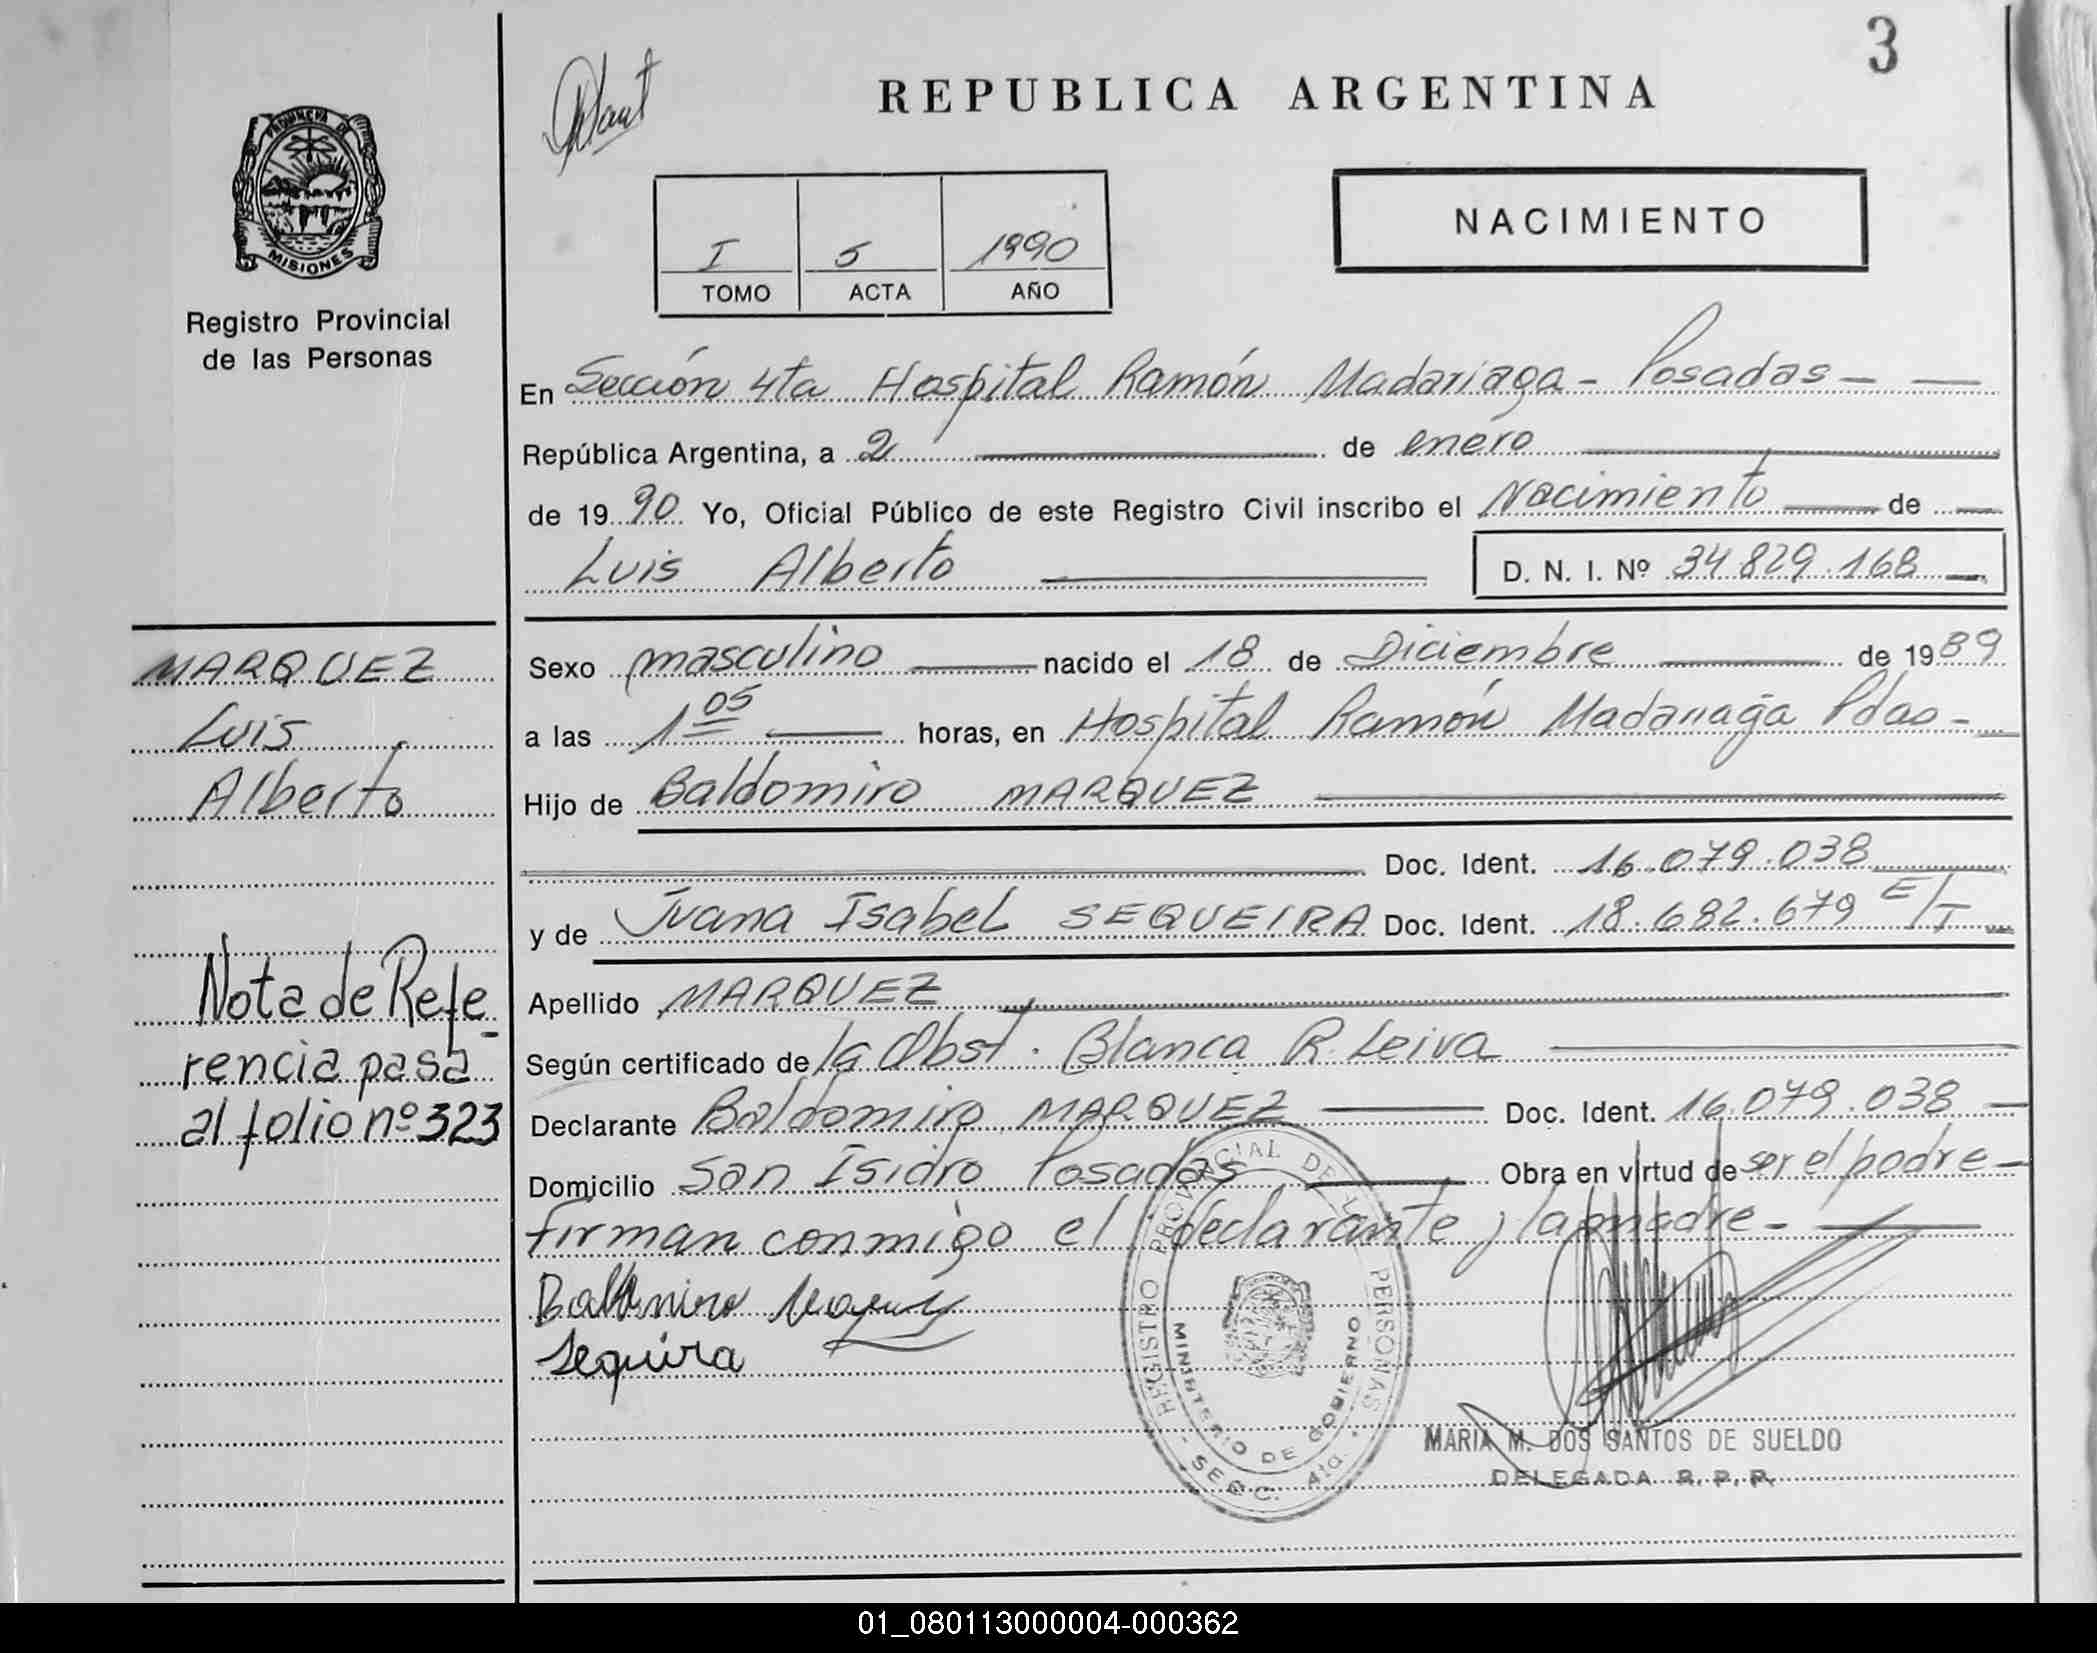 3
REPUBLICA ARGENTINA
PROVINCIA DE
MISIONES
Registro Provincial
de las Personas
I 5 1990
TOMO ACTA AÑO
NACIMIENTO
En Sección 4ta Hospital Ramón Madariaga - Posadas -
República Argentina, a 2 de enero
de 1990 Yo, Oficial Público de este Registro Civil inscribo el Nacimiento de
Luis Alberto D. N. I. Nº 34.829.168
MARQUEZ
Luis
Alberto
Nota de Refe-
rencia pasa
al folio nº 323
Sexo masculino nacido el 18 de Diciembre de 1989
a las 1 05 horas, en Hospital Ramón Madariaga Pdas-
Hijo de Baldomiro MARQUEZ
Doc. Ident. 16.079.038
y de Juana Isabel SEQUEIRA Doc. Ident. 18.682.679 E/T
Apellido MARQUEZ
Según certificado de la Obst. Blanca R. Leiva
Declarante Baldomiro MARQUEZ Doc. Ident. 16.079.038
Domicilio San Isidro Posadas Obra en virtud de ser el padre -
firman conmigo el declarante y la madre -
Baldomiro Marquez
Sequira
REGISTRO PROVINCIAL DE LAS PERSONAS
MINISTERIO DE GOBIERNO
- SECC. 4ta. -
MARIA M. DOS SANTOS DE SUELDO
DELEGADA R. P. P.
01_080113000004-000362